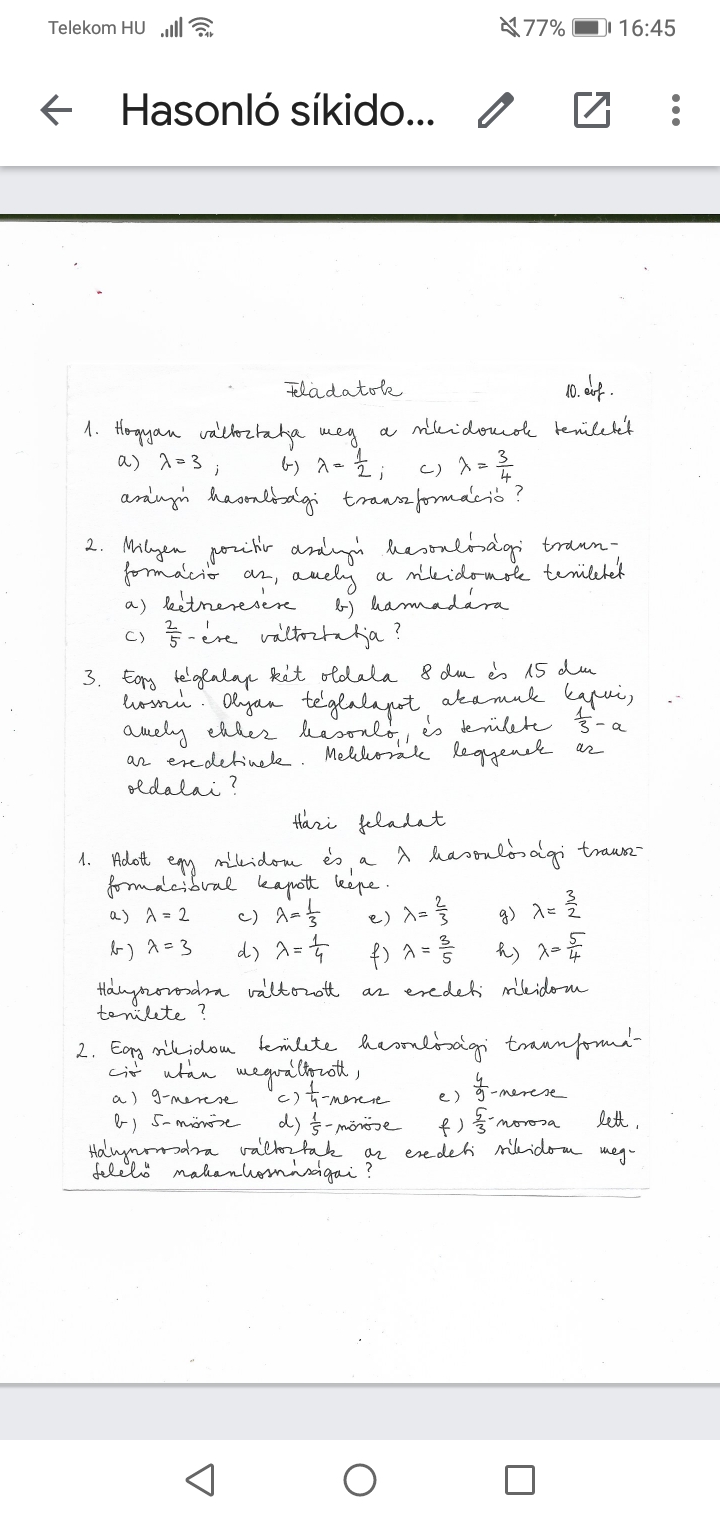 Telekom HU 77% 16:45
Hasonló síkido...
Feladatok 10. évf.
1. Hogyan változtatja meg a síkidomok területét
a) λ=3 ; b) λ=1/2 ; c) λ=3/4
arányú hasonlósági transzformáció?
2. Milyen pozitív arányú hasonlósági transz-
formáció az, amely a síkidomok területét
a) kétszeresére b) harmadára
c) 2/5-ére változtatja?
3. Egy téglalap két oldala 8 dm és 15 dm
hosszú. Olyan téglalapot akarunk kapni,
amely ehhez hasonló, és területe 1/3-a
az eredetinek. Mekkorák legyenek az
oldalai?
Házi feladat
1. Adott egy síkidom és a λ hasonlósági transz-
formációval kapott képe.
a) λ=2 c) λ=1/3 e) λ=2/3 g) λ=3/2
b) λ=3 d) λ=1/4 f) λ=3/5 h) λ=5/4
Hányszorosára változott az eredeti síkidom
területe?
2. Egy síkidom területe hasonlósági transzformá-
ció után megváltozott,
a) 9-szerese c) 1/4-szerese e) 4/9-szerese
b) 5-szöröse d) 1/5-szöröse f) 5/3-szorosa lett.
Hányszorosára változtak az eredeti síkidom meg-
felelő szakaszhosszúságai?